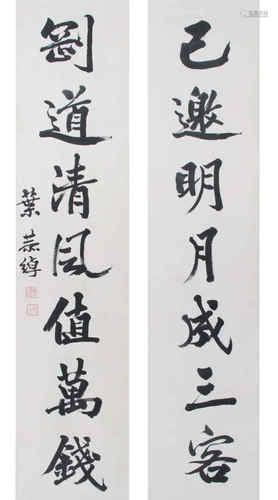 已邀明月成三客
劉道清風值萬錢
葉恭綽